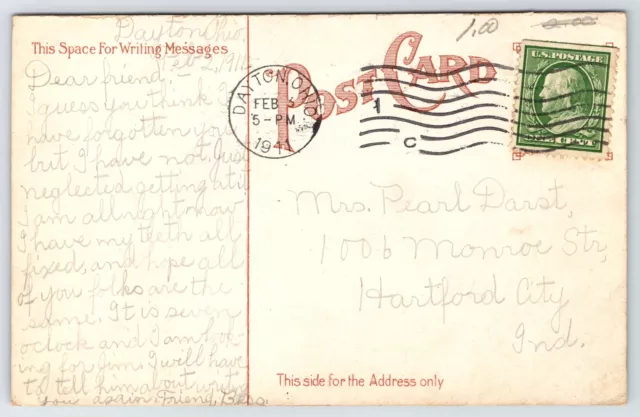 1.00
This Space For Writing Messages
POST CARD
U.S. POSTAGE
DAYTON, OHIO
FEB 3
5-PM
1911
1
C
Dayton Ohio,
Feb 2, 191
Dear friend,
I guess you think I
have forgotten you
but I have not. Just
neglected getting at it
I am allright now
I have my teeth all
fixed, and hope all
of you folks are the
same. It is seven
oclock and I am look
ing for Jim. I will have
to tell him about writing
you again. Friend,
Mrs. Pearl Darst,
1006 Monroe Str,
Hartford City
Ind.
This side for the Address only